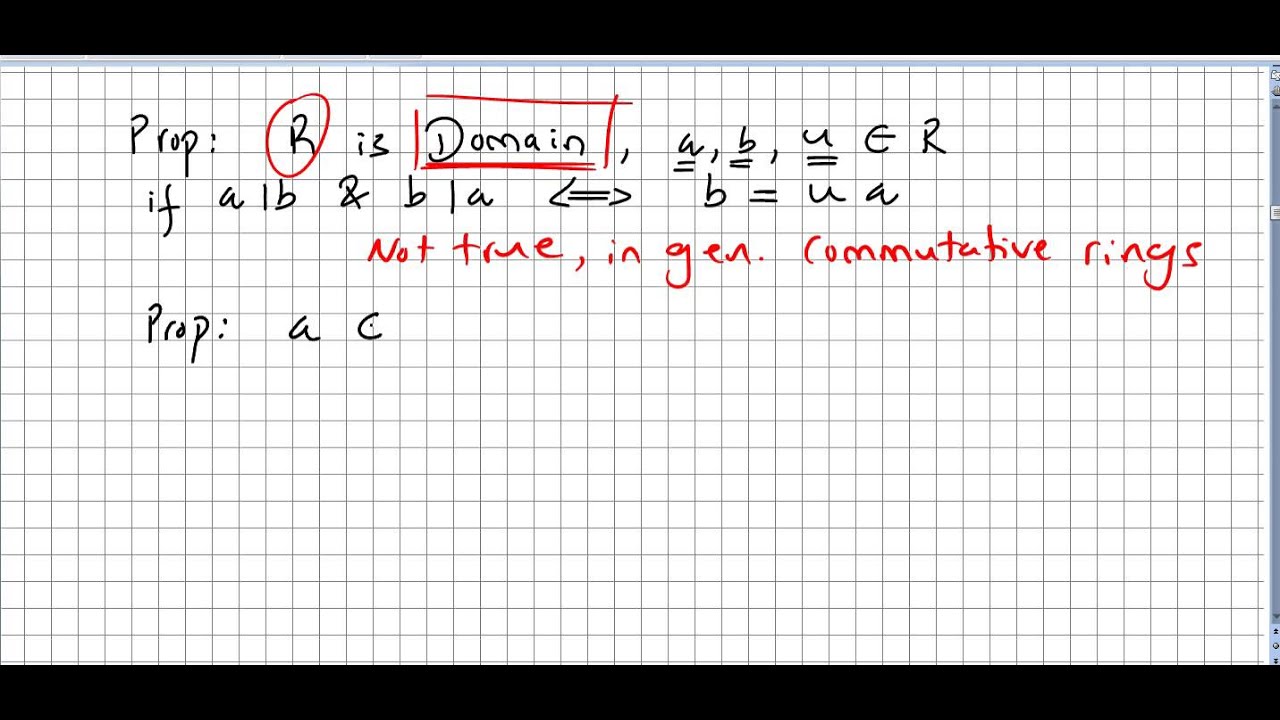 Prop: R is Domain, a, b, u ∈ R
if a | b & b | a <=> b = u a
Not true, in gen. Commutative rings
Prop: a c